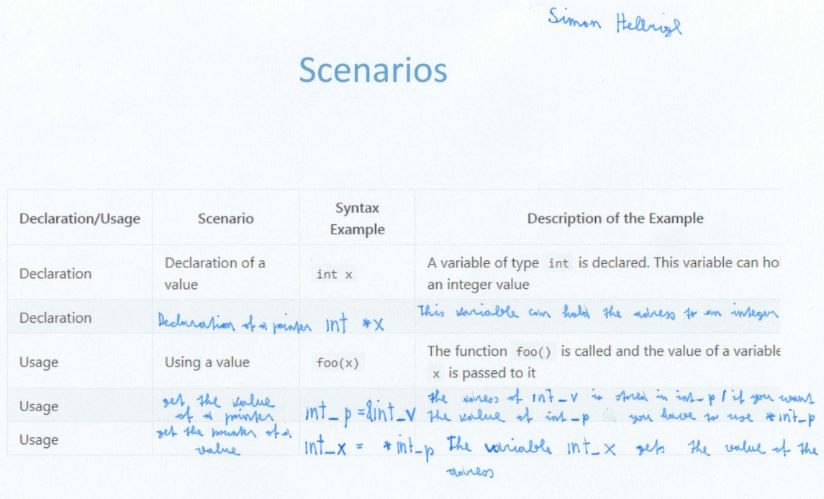 Simon Hellrigl
Scenarios
Declaration/Usage Scenario Syntax Example Description of the Example
Declaration Declaration of a value int x A variable of type int is declared. This variable can ho
an integer value
Declaration Declaration of a pointer int *x This variable can hold the adress to an integer
Usage Using a value foo(x) The function foo() is called and the value of a variable
x is passed to it
Usage get the value of a pointer int_p = &int_v the adress of int_v is stored in int_p / if you want
the value of int_p you have to use *int_p
Usage get the pointer of a value int_x = *int_p The variable int_x gets the value of the
adress